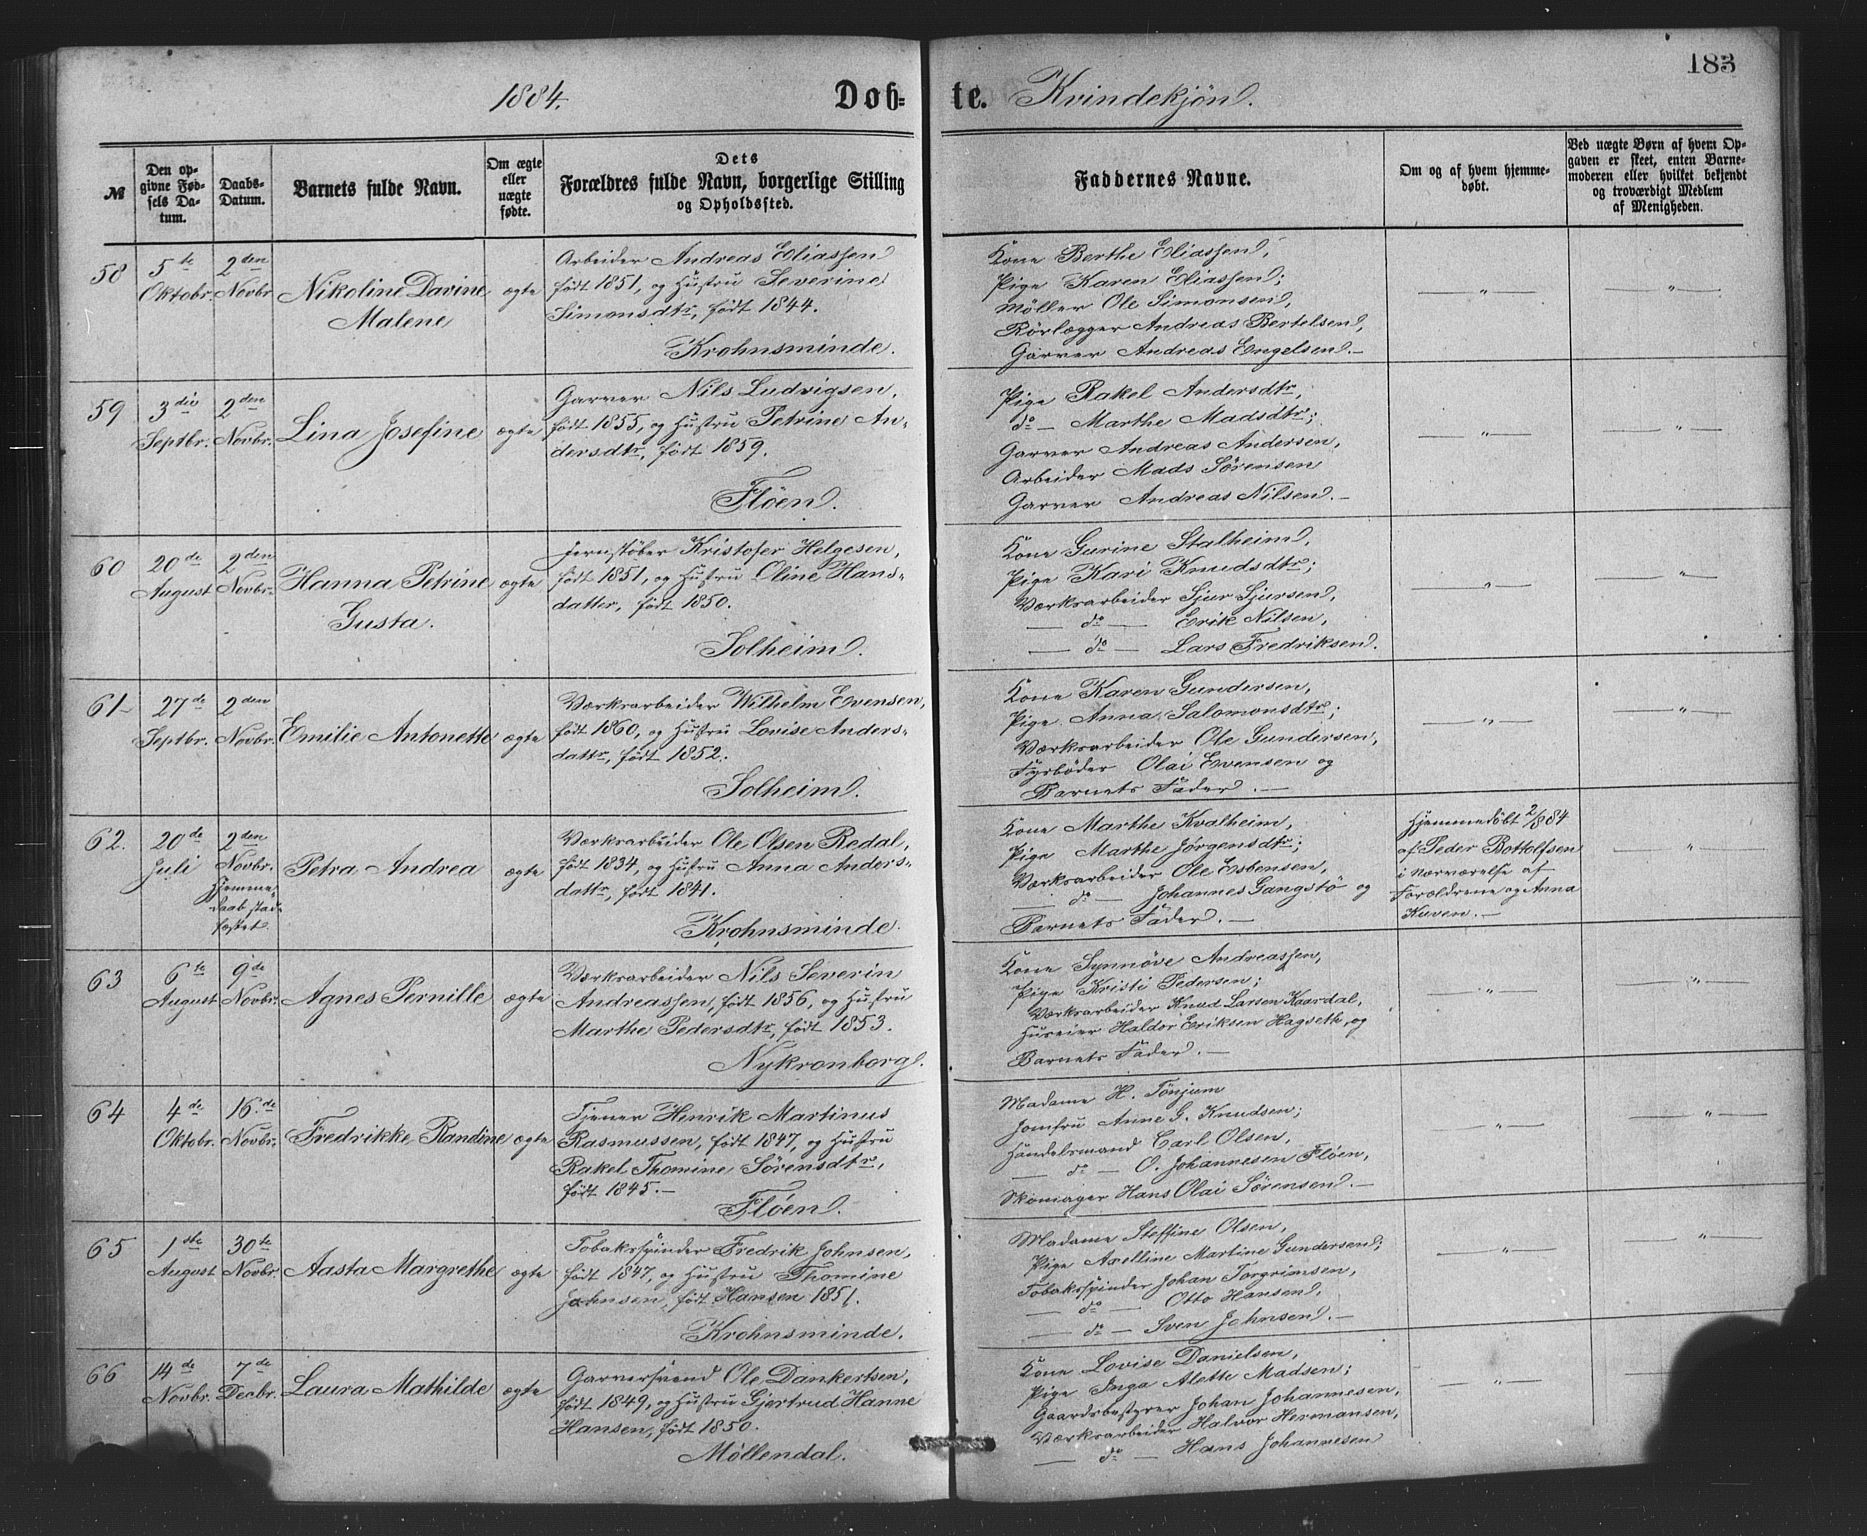 183
1884.
Døb-
te.
Kvindekjøn.
№
Den op-
givne Fød-
sels Da-
tum.
Daabs-
Datum.
Barnets fulde Navn.
Om ægte
eller
uægte
fødte.
Dets
Forældres fulde Navn, borgerlige Stilling
og Opholdssted.
Faddernes Navne.
Om og af hvem hjemme-
døbt.
Ved uægte Børn af hvem Op-
gaven er skeet, enten Barne-
moderen eller hvilket bekjendt
og troværdigt Medlem
af Menigheden.
58
5te
Oktobr.
2den
Novbr
Nikoline Davine
Malene
ægte
Arbeider Andreas Eliassen
født 1851, og Hustru Severine
Simonsdtr, født 1844.
Krohnsminde.
Kone Berthe Eliassen,
Pige Karen Eliassen;
Møller Ole Simonsen,
Rørlægger Andreas Bertelsen,
Garver Andreas Engelsen.—
— " —
— " —
59
3die
Septbr.
2den
Novbr.
Lina Josefine
ægte
Garver Nils Ludvigsen,
født 1855, og Hustru Petrine An-
dersdtr, født 1859.
Fløen.
Pige Rakel Andersdtr,
do — Marthe Madsdtr;
Garver Andreas Andersen,
Arbeider Mads Sørensen
Garver Andreas Nilsen.—
— " —
— " —
60
20de
August
2den
Novbr.
Hanna Petrine
Gusta.
ægte
Jernstøber Kristofer Helgesen,
født 1851, og Hustru Oline Hans-
datter, født 1850.
Solheim.
Kone Gurine Stalheim,
Pige Kari Knudsdtr;
Værksarbeider Sjur Sjursen,
— do — Erik Nilsen,
— do — Lars Fredriksen.
— " —
— " —
61
27de
Septbr.
2den
Novbr.
Emilie Antonette
ægte
Værksarbeider Wilhelm Evensen,
født 1860, og Hustru Lovise Anders-
dattr, født 1852.
Solheim.
Kone Karen Gundersen,
Pige Anna Salomonsdtr;
Værksarbeider Ole Gundersen,
Fyrbøder Olai Evensen og
Barnets Fader.—
— " —
— " —
62.
20de
Juli
2den
Novbr.
Hjemme-
daab stad-
fæstet.
Petra Andrea
ægte
Værksarbeider Ole Olsen Redal,
født 1834, og Hustru Anna Anders-
dattr, født 1841.
Krohnsminde.
Kone Marthe Kvalheim,
Pige Marthe Jørgensdtr;
Værksarbeider Ole Esbensen,
— do — Johannes Gangstø og
Barnets Fader.—
Hjemmedøbt 2/8 84
af Peder Bottolfsen
i Nærværelse af
Forældrene og Anna
Kuven.—
— " —
63
6te
August
9de
Novbr.
Agnes Pernille
ægte
Værksarbeider Nils Severin
Andreassen, født 1856, og Hustru
Marthe Pedersdtr, født 1853.
Nykronborg.
Kone Synnøve Andreassen,
Pige Kristi Pedersen;
Værksarbeider Knud Larsen Kaardal,
Huseier Haldor Eriksen Hagseth, og
Barnets Fader.—
— " —
— " —
64
4de
Oktobr.
16.de
Novbr.
Fredrikke Randine
ægte
Tjener Henrik Martinus
Rasmussen, født 1847, og Hustru
Rakel Thomine Sørensdtr,
født 1845.—
Fløen.
Madame H. Tønjum
Jomfru Anne G. Knudsen;
Handelsmand Carl Olsen,
— do — O. Johannesen Fløen,
Skomager Hans Olai Sørensen.—
— " —
— " —
65
1ste
August
30te
Novbr.
Aasta Margrethe
ægte
Tobaksspinder Fredrik Johnsen,
født 1847, og Hustru Thomine
Johnsen, født Hansen 1851.
Krohnsminde.
Madame Steffine Olsen,
Pige Axelline Martine Gundersen;
Tobaksspinder Johan Torgrimsen,
— do — Otto Hansen,
— do — Sven Johnsen.—
— " —
— " —
66
14de
Novbr.
7de
Decbr.
Laura Mathilde
ægte
Garversvend Ole Dankertsen,
født 1849, og Hustru Gjertrud Hanne
Hansen, født 1850.
Møllendal.
Kone Lovise Danielsen,
Pige Inga Alette Madsen;
Gaardsbestyrer Johan Johannesen,
Værksarbeider Halvor Hermansen,
— do — Hans Johannesen
— " —